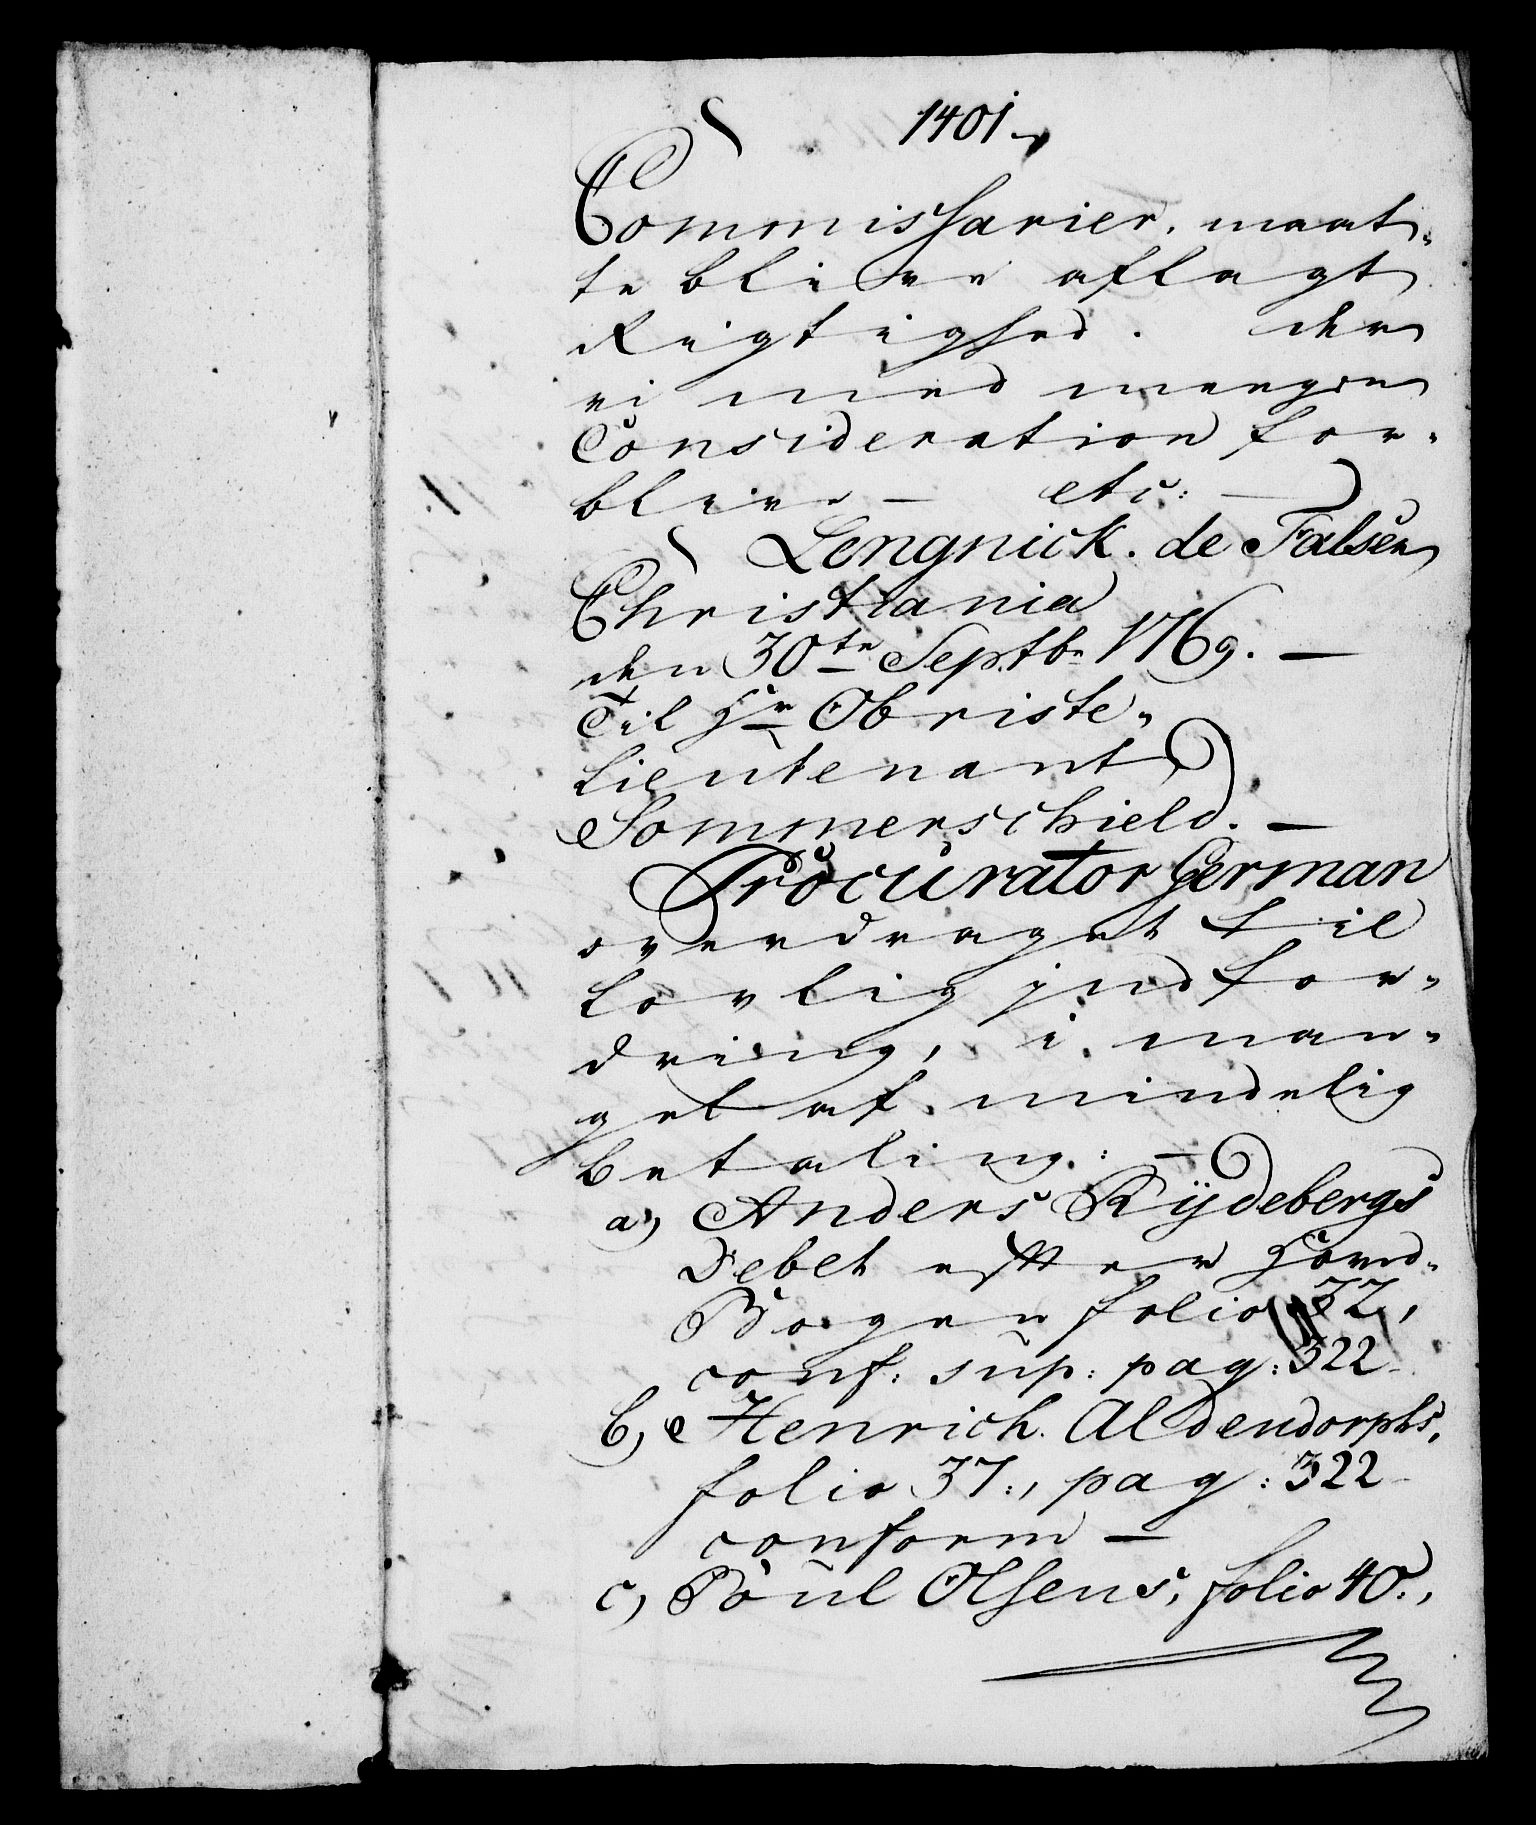 1401.
Commissarier, maat-
te blive aflagt
Rigtighed. der
vi med megen
Consideration for-
blive — etc: —
Lengnick. de Falsen
Christiania
den 30te Septbr 1769. —
Til Hr Obriste-
Lieutenant
Sommerschield. —
Procurator German
overdraget til
Lovlig jndfor-
dring, i man-
gel af mindelig
betaling: —
a) Anders Rÿdebergs
Debet efter Hoved-
Bogen folio 32,
conf: sup: pag: 322
b) Henrich Aldendorphs,
folio 37:, pag: 322
conform —
c) Poul Olsens, folio 40.,